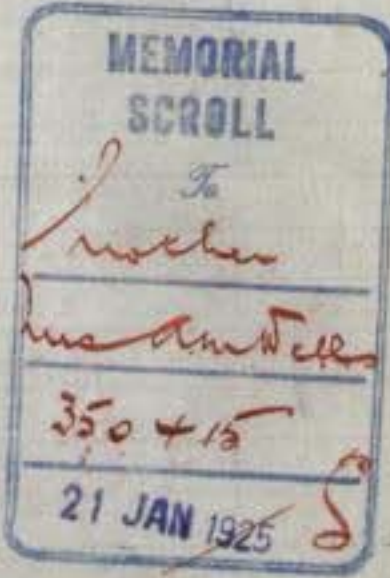 MEMORIAL
SCROLL
To
mother
Mrs Am Wells
350415
21 JAN 1925